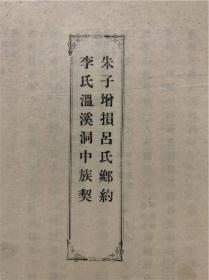 朱子增損呂氏鄉約
李氏溫溪洞中族契